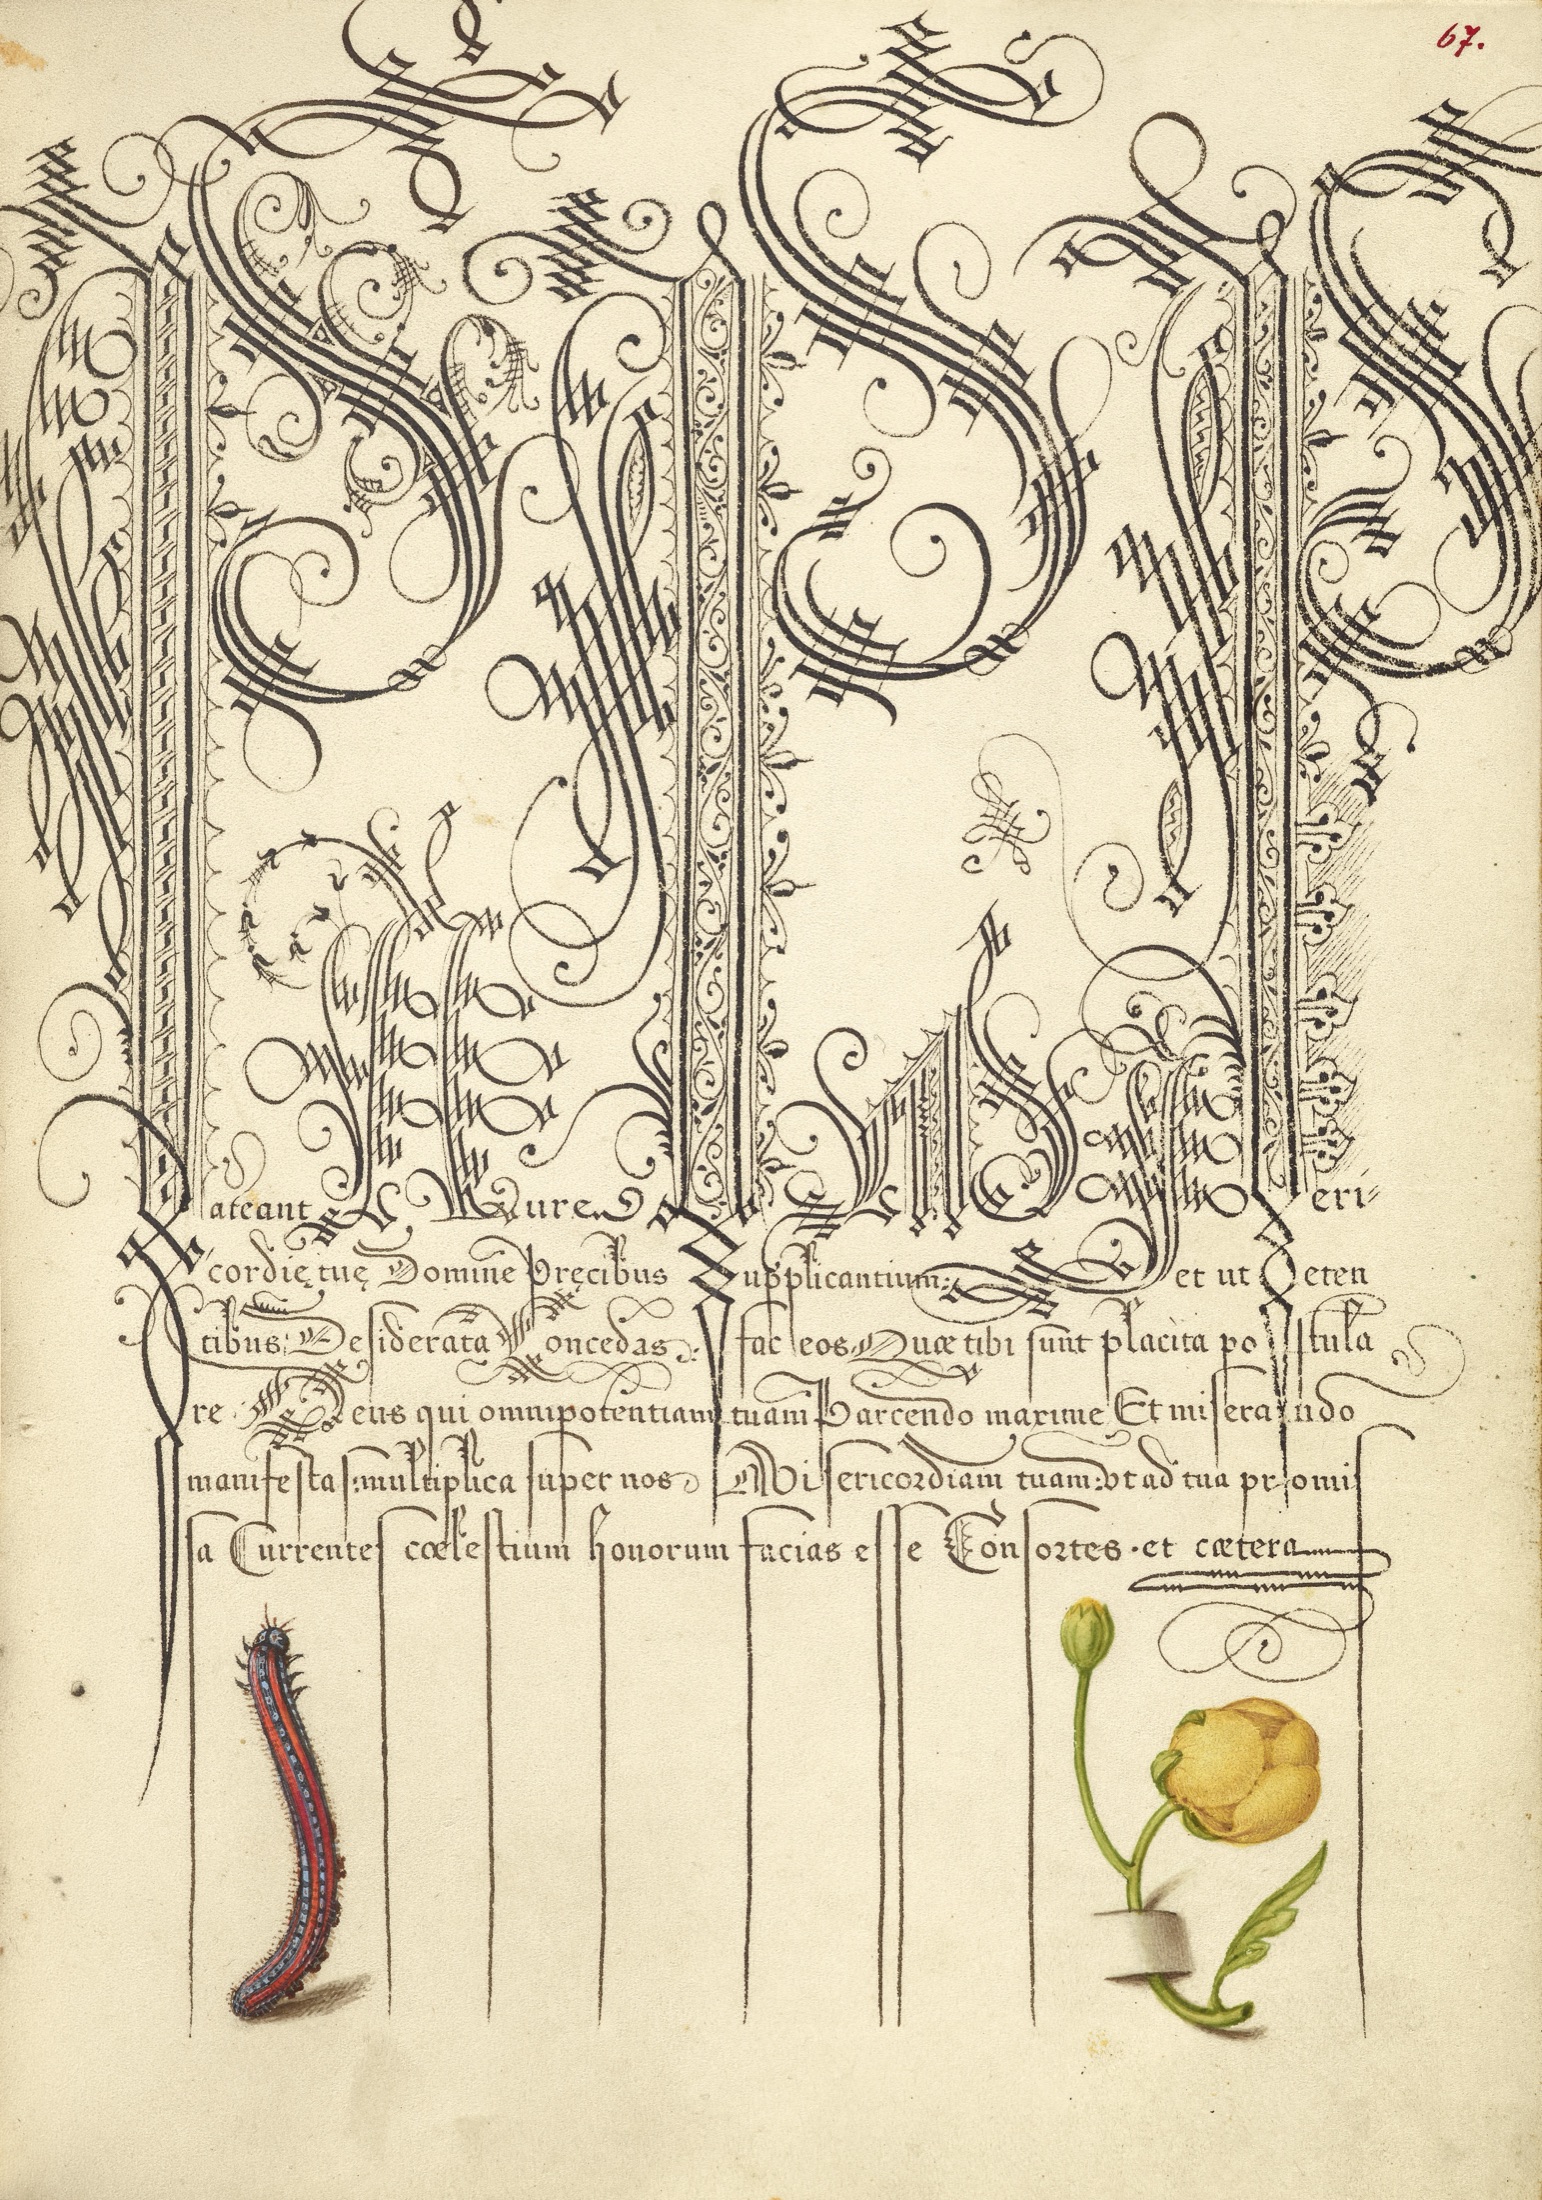 67.
Pateant Aures Misericordię
cordię tuę Domine Pręcibus Supplicantium: et ut Peten
tibus: Desiderata Concedas: fac eos Quæ tibi sunt placita postula
re Deus qui omnipotentiam tuam Parcendo maxime Et miserando
manifestas: multiplica super nos Misericordiam tuam: vt ad tua promis
sa Currentes cœlestium honorum facias esse Consortes · et cætera